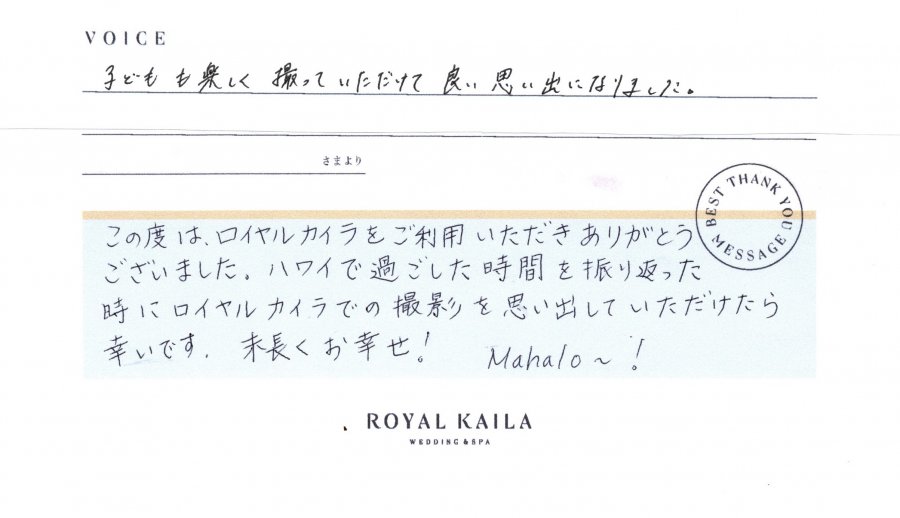 VOICE
子どもも楽しく撮っていただけて良い思い出になりました。
さまより
BEST THANK YOU
MESSAGE
この度は、ロイヤルカイラをご利用いただきありがとう
ございました。ハワイで過ごした時間を振り返った
時にロイヤルカイラでの撮影を思い出していただけたら
幸いです. 末長くお幸せ! Mahalo~!
ROYAL KAILA
WEDDING & SPA